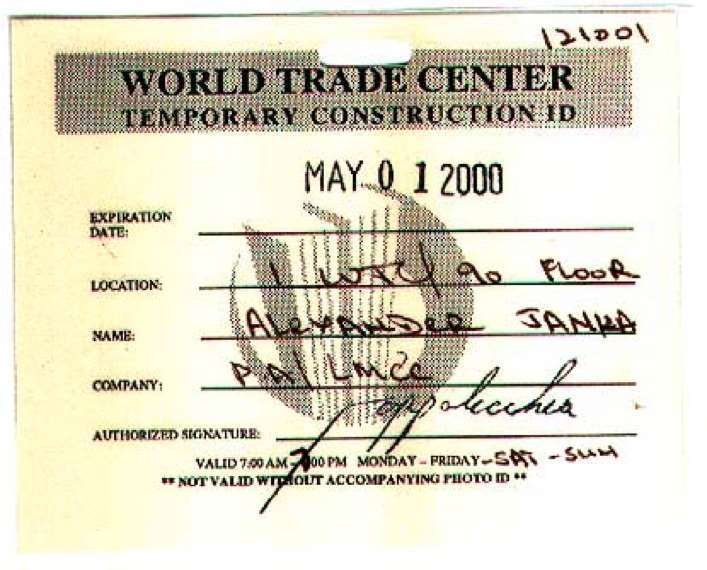 121001
WORLD TRADE CENTER
TEMPORARY CONSTRUCTION ID
MAY 0 1 2000
EXPIRATION
DATE:
LOCATION: 1 WTC/ 90 FLOOR
NAME: ALEXANDER JANKA
COMPANY: PA/LMCC
AUTHORIZED SIGNATURE:
VALID 7:00 AM - 7:00 PM MONDAY - FRIDAY - SAT - SUN
** NOT VALID WITHOUT ACCOMPANYING PHOTO ID **